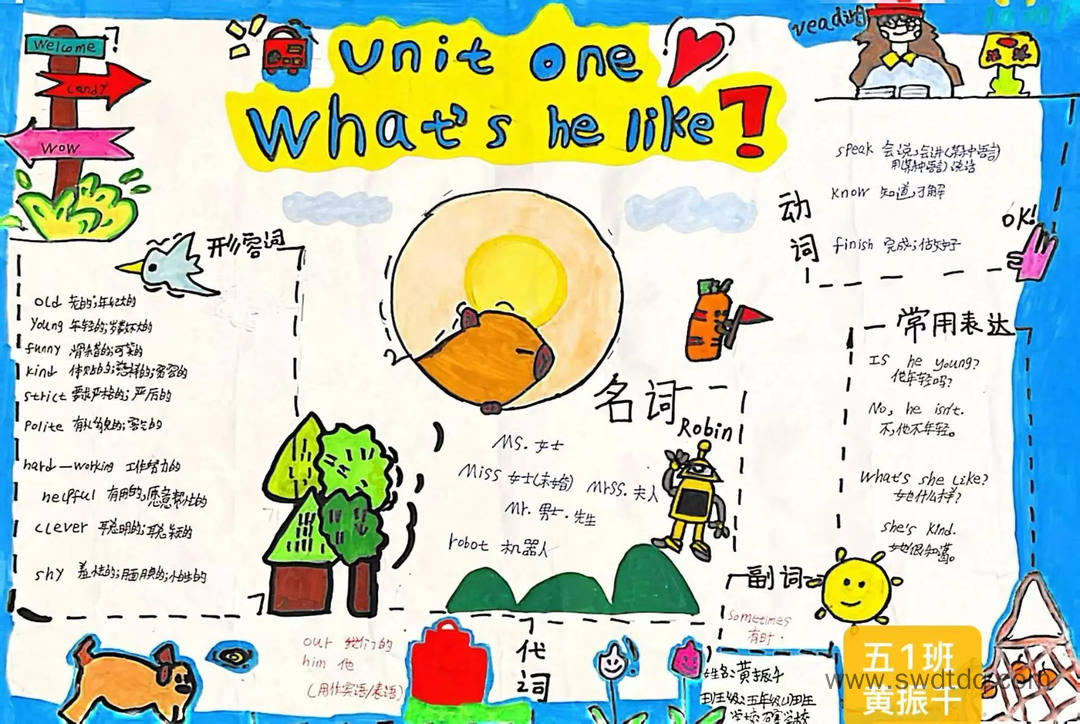 Welcome
Candy
Wow
Unit one
What's he like?
reading
形容词
old 老的;年纪大的
young 年轻的;岁数不大的
funny 滑稽的;可笑的
kind 体贴的;慈祥的;宽容的
strict 要求严格的;严厉的
polite 有礼貌的;客气的
hard-working 工作努力的
helpful 有用的;愿意帮忙的
clever 聪明的;聪颖的
shy 羞怯的;腼腆的;怕生的
动词
speak 会说;会讲(某种语言)
用(某种语言)说话
know 知道;了解
finish 完成;做好
OK!
常用表达
Is he young?
他年轻吗?
No, he isn't.
不,他不年轻。
What's she like?
她什么样?
she's kind.
她很和蔼。
名词
Robin
Ms. 女士
Miss 女士(未婚) Mrss. 夫人
Mr. 男士.先生
robot 机器人
副词
sometimes
有时.
代词
our 我们的
him 他
(用作宾语/表语)
姓名:黄振牛
班级:五年级(1)班
学校:
五1班
黄振牛
www.swdtdq.com